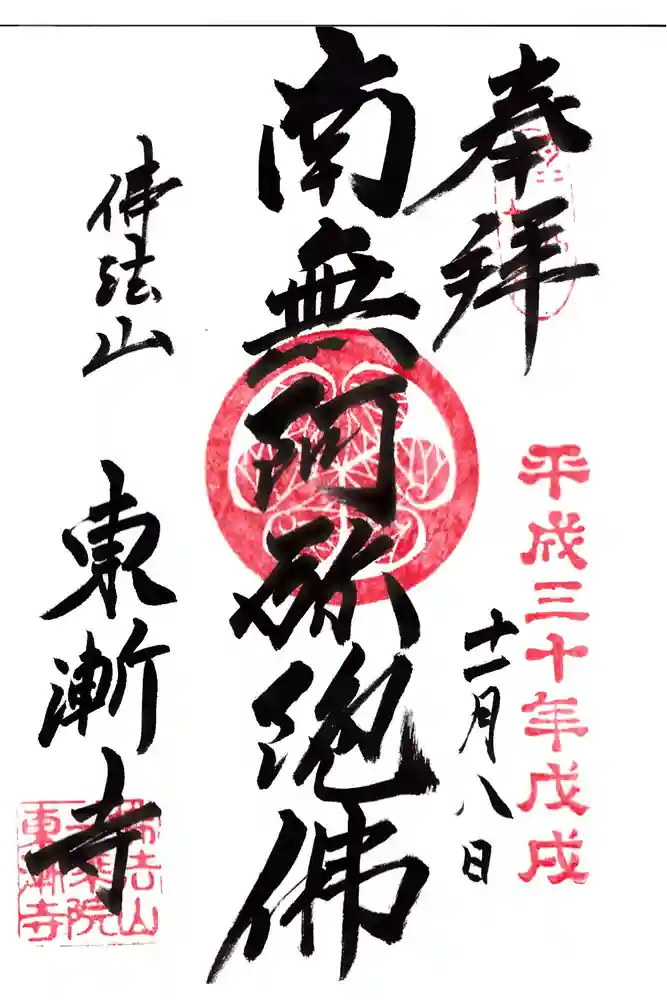 奉拝
平成三十年戊戌
十一月八日
南無阿弥陀佛
佛法山
東漸寺
佛法山
一乗院
東漸寺